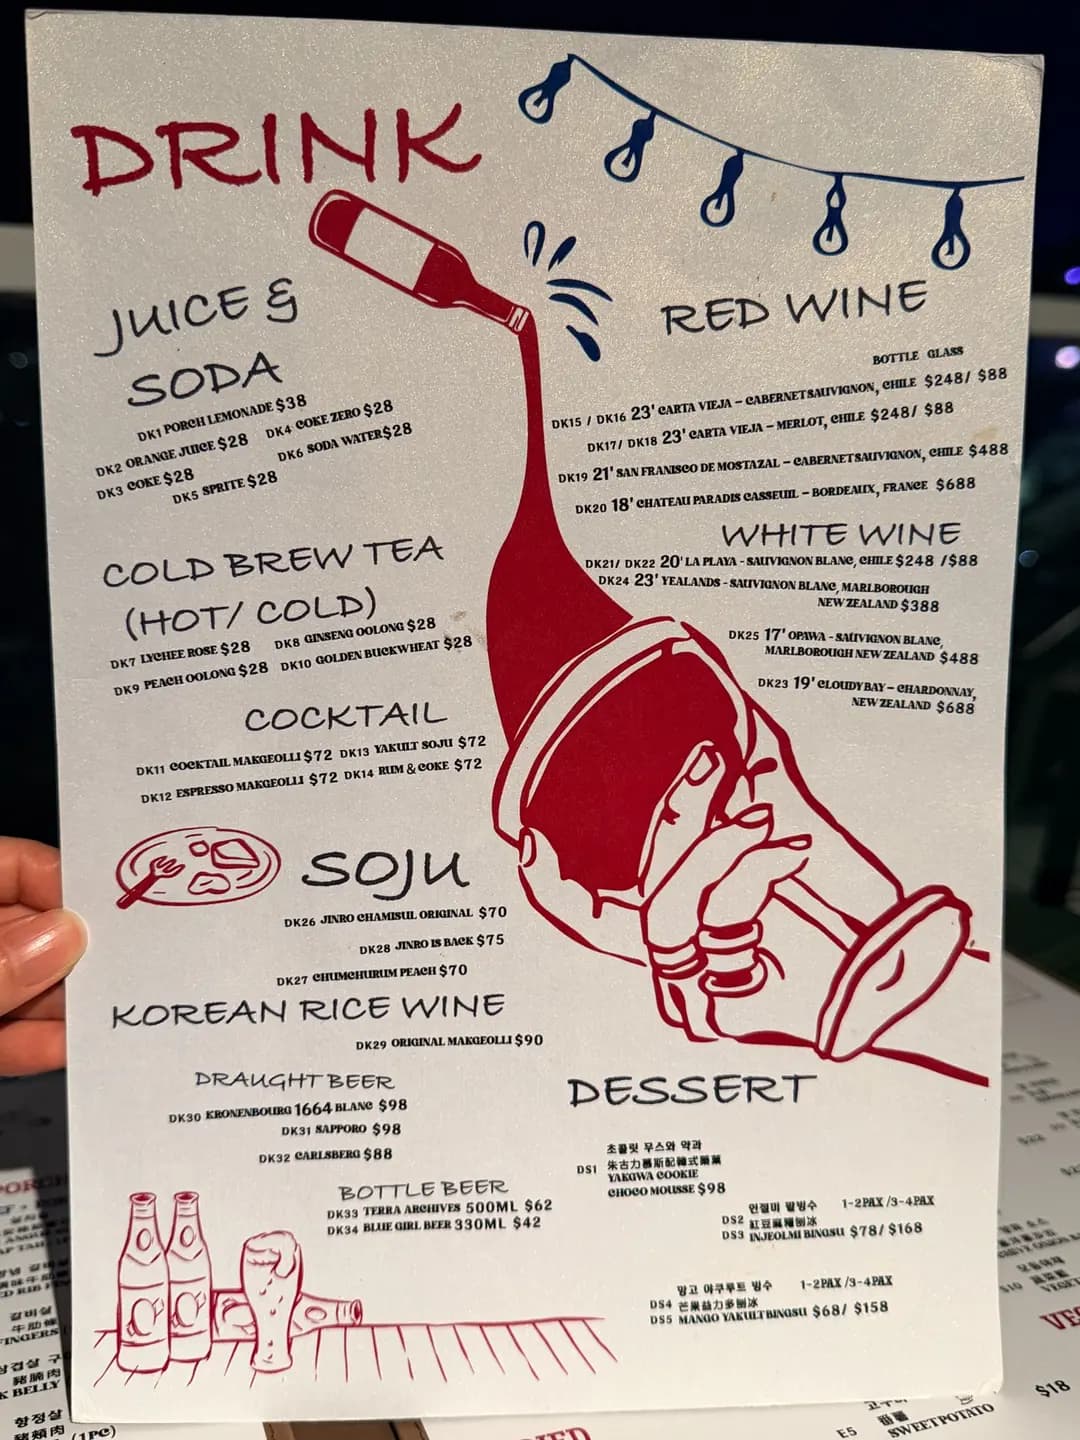 DRINK
JUICE &
SODA
DK1 PORCH LEMONADE $38
DK2 ORANGE JUICE $28 DK4 COKE ZERO $28
DK3 COKE $28 DK6 SODA WATER$28
DK5 SPRITE $28
COLD BREW TEA
(HOT/ COLD)
DK7 LYCHEE ROSE $28 DK8 GINSENG OOLONG $28
DK9 PEACH OOLONG $28 DK10 GOLDEN BUCKWHEAT $28
COCKTAIL
DK11 COCKTAIL MAKGEOLLI $72 DK13 YAKULT SOJU $72
DK12 ESPRESSO MAKGEOLLI $72 DK14 RUM & COKE $72
SOJU
DK26 JINRO CHAMISUL ORIGINAL $70
DK28 JINRO IS BACK $75
DK27 CHUMCHURUM PEACH $70
KOREAN RICE WINE
DK29 ORIGINAL MAKGEOLLI $90
DRAUGHT BEER
DK30 KRONENBOURG 1664 BLANC $98
DK31 SAPPORO $98
DK32 CARLSBERG $88
BOTTLE BEER
DK33 TERRA ARCHIVES 500ML $62
DK34 BLUE GIRL BEER 330ML $42
RED WINE
BOTTLE GLASS
DK15 / DK16 23' CARTA VIEJA – CABERNET SAUVIGNON, CHILE $248/ $88
DK17/ DK18 23' CARTA VIEJA – MERLOT, CHILE $248/ $88
DK19 21' SAN FRANISCO DE MOSTAZAL – CABERNET SAUVIGNON, CHILE $488
DK20 18' CHATEAU PARADIS CASSEUIL – BORDEAUX, FRANCE $688
WHITE WINE
DK21/ DK22 20' LA PLAYA - SAUVIGNON BLANC, CHILE $248 /$88
DK24 23' YEALANDS - SAUVIGNON BLANC, MARLBOROUGH
NEW ZEALAND $388
DK25 17' OPAWA - SAUVIGNON BLANC,
MARLBOROUGH NEW ZEALAND $488
DK23 19' CLOUDY BAY – CHARDONNAY,
NEW ZEALAND $688
DESSERT
초콜릿 무스와 약과
DS1 朱古力慕斯配韓式藥菓
YAKGWA COOKIE
CHOCO MOUSSE $98
인절미 팥빙수 1-2PAX /3-4PAX
DS2 紅豆麻糬刨冰
DS3 INJEOLMI BINGSU $78/ $168
망고 야쿠루트 빙수 1-2PAX /3-4PAX
DS4 芒果益力多刨冰
DS5 MANGO YAKULT BINGSU $68/ $158
갈비살
FINGERS
豬腩肉
K BELLY
항정살
豬頰肉
(1PC)
E5 SWEET POTATO
$18